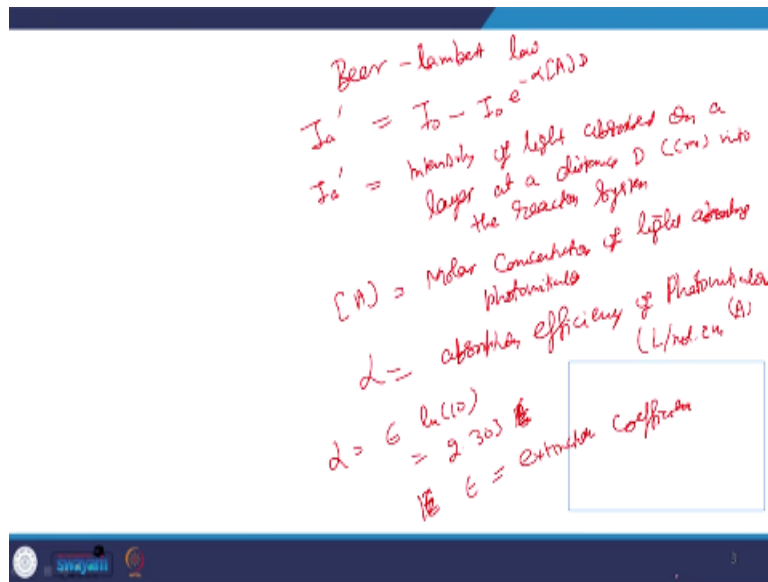 Beer - lambert law
Ia' = I0 - I0 e^-α[A]D
Ia' = Intensity of light absorbed in a
layer at a distance D (cm) into
the reaction system
[A] = Molar Concentration of light absorbing
photoinitiator
α = absorption efficiency of Photoinitiator (A)
(L/mol. cm
α = ε ln(10)
= 2.303 ε
ε = extinction coefficient
swayam
3